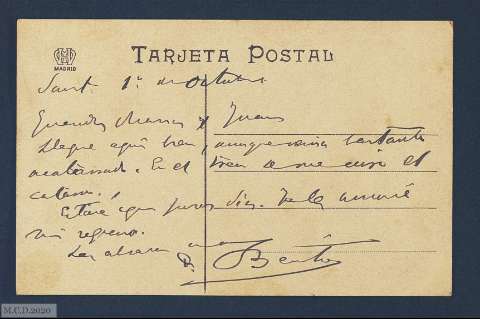 TARJETA POSTAL
MADRID
Sant. 1º de Octubre
Queridos Mamá y Juan
Llegué aquí bien, aunque vine bastante
acatarrado. En el tren se me curó el
catarro.
Estaré aquí pocos días. Ya les avisaré
mi regreso.
Les abraza
Benito
M.C.D.2020